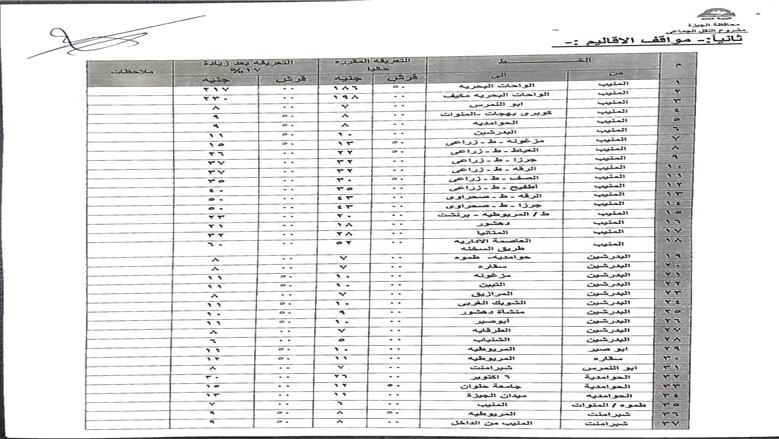 محافظة الجيزة
مشروع النقل الجماعى
ثانيا:- مواقف الاقاليم :-
م الخط التعريفه المقرره حاليا التعريفه بعد زيادة ١٧% ملاحظات
من الى قرش جنيه قرش جنيه
١ المنيب الواحات البحريه ٥٠ ١٨٦ ٠٠ ٢١٧
٢ المنيب الواحات البحريه مكيف ٠٠ ١٩٨ ٠٠ ٢٣٠
٣ المنيب ابو النمرس ٠٠ ٧ ٠٠ ٨
٤ المنيب كوبرى بهجات -المنوات ٠٠ ٨ ٥٠ ٩
٥ المنيب الحوامديه ٠٠ ٨ ٥٠ ٩
٦ المنيب البدرشين ٠٠ ١٠ ٥٠ ١١
٧ المنيب مزغونه - ط - زراعى ٥٠ ١٣ ٥٠ ١٥
٨ المنيب العياط - ط - زراعى ٥٠ ٢٢ ٠٠ ٢٦
٩ المنيب جرزا - ط - زراعى ٠٠ ٣٢ ٠٠ ٣٧
١٠ المنيب الرقه - ط - زراعى ٠٠ ٣٢ ٠٠ ٣٧
١١ المنيب الصف - ط - زراعى ٥٠ ٣٠ ٠٠ ٣٥
١٢ المنيب أطفيح - ط - زراعى ٠٠ ٣٥ ٠٠ ٤٠
١٣ المنيب الرقه - ط - صحراوى ٠٠ ٤٣ ٠٠ ٥٠
١٤ المنيب جرزا - ط - صحراوى ٠٠ ٤٣ ٠٠ ٥٠
١٥ المنيب ط / المريوطيه - برنشت ٠٠ ٢٠ ٠٠ ٢٣
١٦ المنيب دهشور ٠٠ ١٨ ٠٠ ٢١
١٧ المنيب المتانيا ٠٠ ٢٨ ٠٠ ٣٢
١٨ المنيب العاصمة الأداريه ٠٠ ٥٢ ٠٠ ٦٠
طريق السخنه
١٩ البدرشين حوامديه- طموه ٠٠ ٧ ٠٠ ٨
٢٠ البدرشين سقاره ٠٠ ٧ ٠٠ ٨
٢١ البدرشين مزغونه ٠٠ ١٠ ٥٠ ١١
٢٢ البدرشين التبين ٠٠ ١٠ ٥٠ ١١
٢٣ البدرشين المرازيق ٠٠ ٧ ٠٠ ٨
٢٤ البدرشين الشوبك الغربى ٠٠ ١٠ ٥٠ ١١
٢٥ البدرشين منشاة دهشور ٠٠ ٩ ٥٠ ١٠
٢٦ البدرشين أبوصير ٠٠ ١٠ ٥٠ ١١
٢٧ البدرشين الطرفايه ٠٠ ٧ ٠٠ ٨
٢٨ البدرشين الشنباب ٠٠ ٥ ٠٠ ٦
٢٩ ابو صير المريوطيه ٠٠ ١٠ ٥٠ ١١
٣٠ سقاره المريوطيه ٠٠ ١١ ٥٠ ١٢
٣١ ابو النمرس شبرامنت ٠٠ ٧ ٠٠ ٨
٣٢ الحوامدية ٦ اكتوبر ٠٠ ٢٦ ٠٠ ٣٠
٣٣ الحوامدية جامعة حلوان ٥٠ ١٢ ٠٠ ١٥
٣٤ الحواميه ميدان الجيزة ٠٠ ١١ ٠٠ ١٣
٣٥ طموه / المنوات المنيب ٠٠ ٦ ٠٠ ٧
٣٦ شبرامنت المريوطيه ٠٠ ٨ ٥٠ ٩
٣٧ شبرامنت المنيب من الداخل ٠٠ ٨ ٥٠ ٩